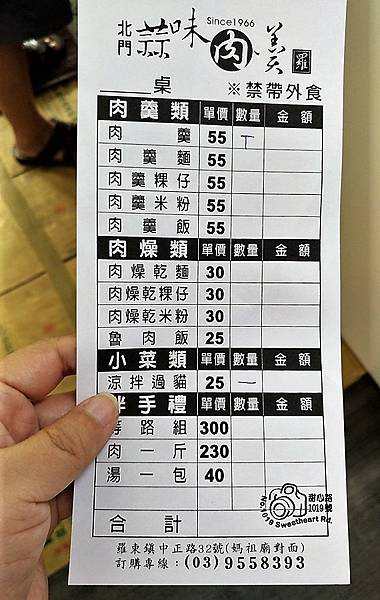 北門 蒜味肉羹 Since1966 羅
桌 ※禁帶外食
肉羹類 單價 數量 金額
肉羹 55 T
肉羹麵 55
肉羹粿仔 55
肉羹米粉 55
肉羹飯 55
肉燥類 單價 數量 金額
肉燥乾麵 30
肉燥乾粿仔 30
肉燥乾米粉 30
魯肉飯 25
小菜類 單價 數量 金額
涼拌過貓 25 一
伴手禮 單價 數量 金額
等路組 300
肉一斤 230
湯一包 40
合計
甜心路
1019號
No.1019 Sweetheart Rd.
羅東鎮中正路32號(媽祖廟對面)
訂購專線:(03)9558393